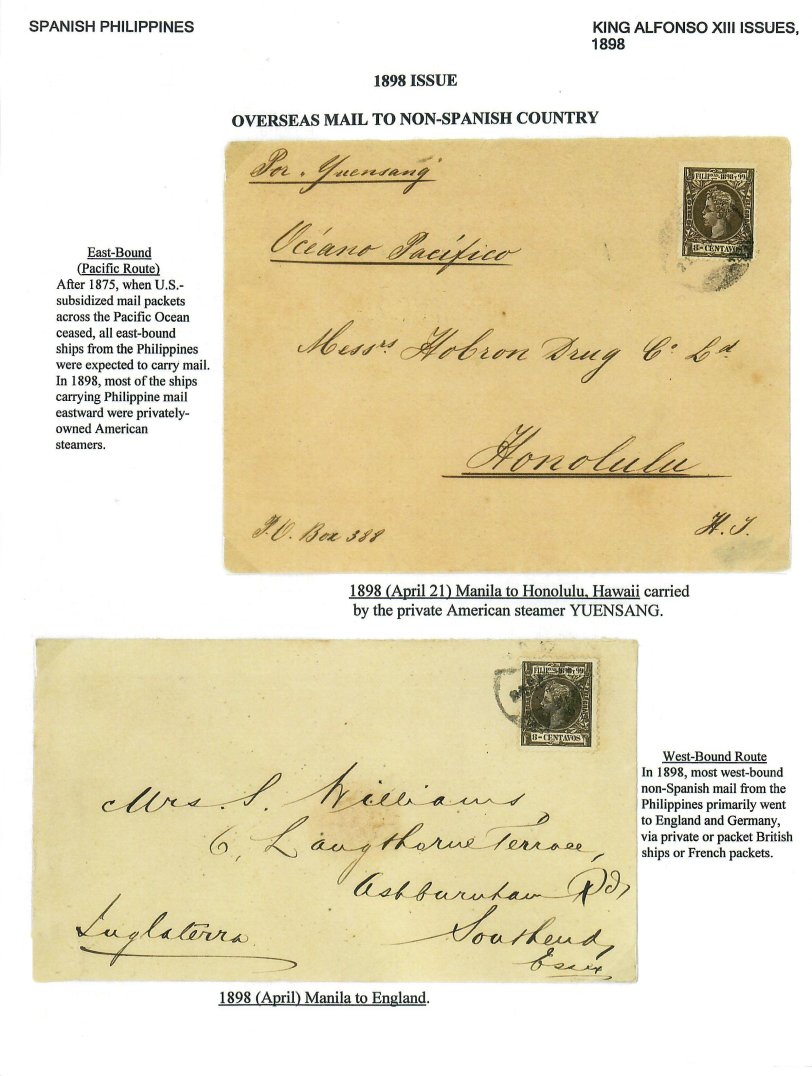 SPANISH PHILIPPINES
KING ALFONSO XIII ISSUES,
1898
1898 ISSUE
OVERSEAS MAIL TO NON-SPANISH COUNTRY
East-Bound
(Pacific Route)
After 1875, when U.S.-
subsidized mail packets
across the Pacific Ocean
ceased, all east-bound
ships from the Philippines
were expected to carry mail.
In 1898, most of the ships
carrying Philippine mail
eastward were privately-
owned American
steamers.
Por "Yuensang"
Océano Pacífico
FILIPnas 1898 Y 99
8-CENTAVOS
Messrs Hobron Drug Co Ld
Honolulu
P.O. Box 388
H.I.
1898 (April 21) Manila to Honolulu, Hawaii carried
by the private American steamer YUENSANG.
FILIPnas 1898 Y 99
8-CENTAVOS
Mrs. S. Williams,
6, Langthorne Terrace,
Ashburnham Rd,
Inglaterra
Southend,
Essex
West-Bound Route
In 1898, most west-bound
non-Spanish mail from the
Philippines primarily went
to England and Germany,
via private or packet British
ships or French packets.
1898 (April) Manila to England.